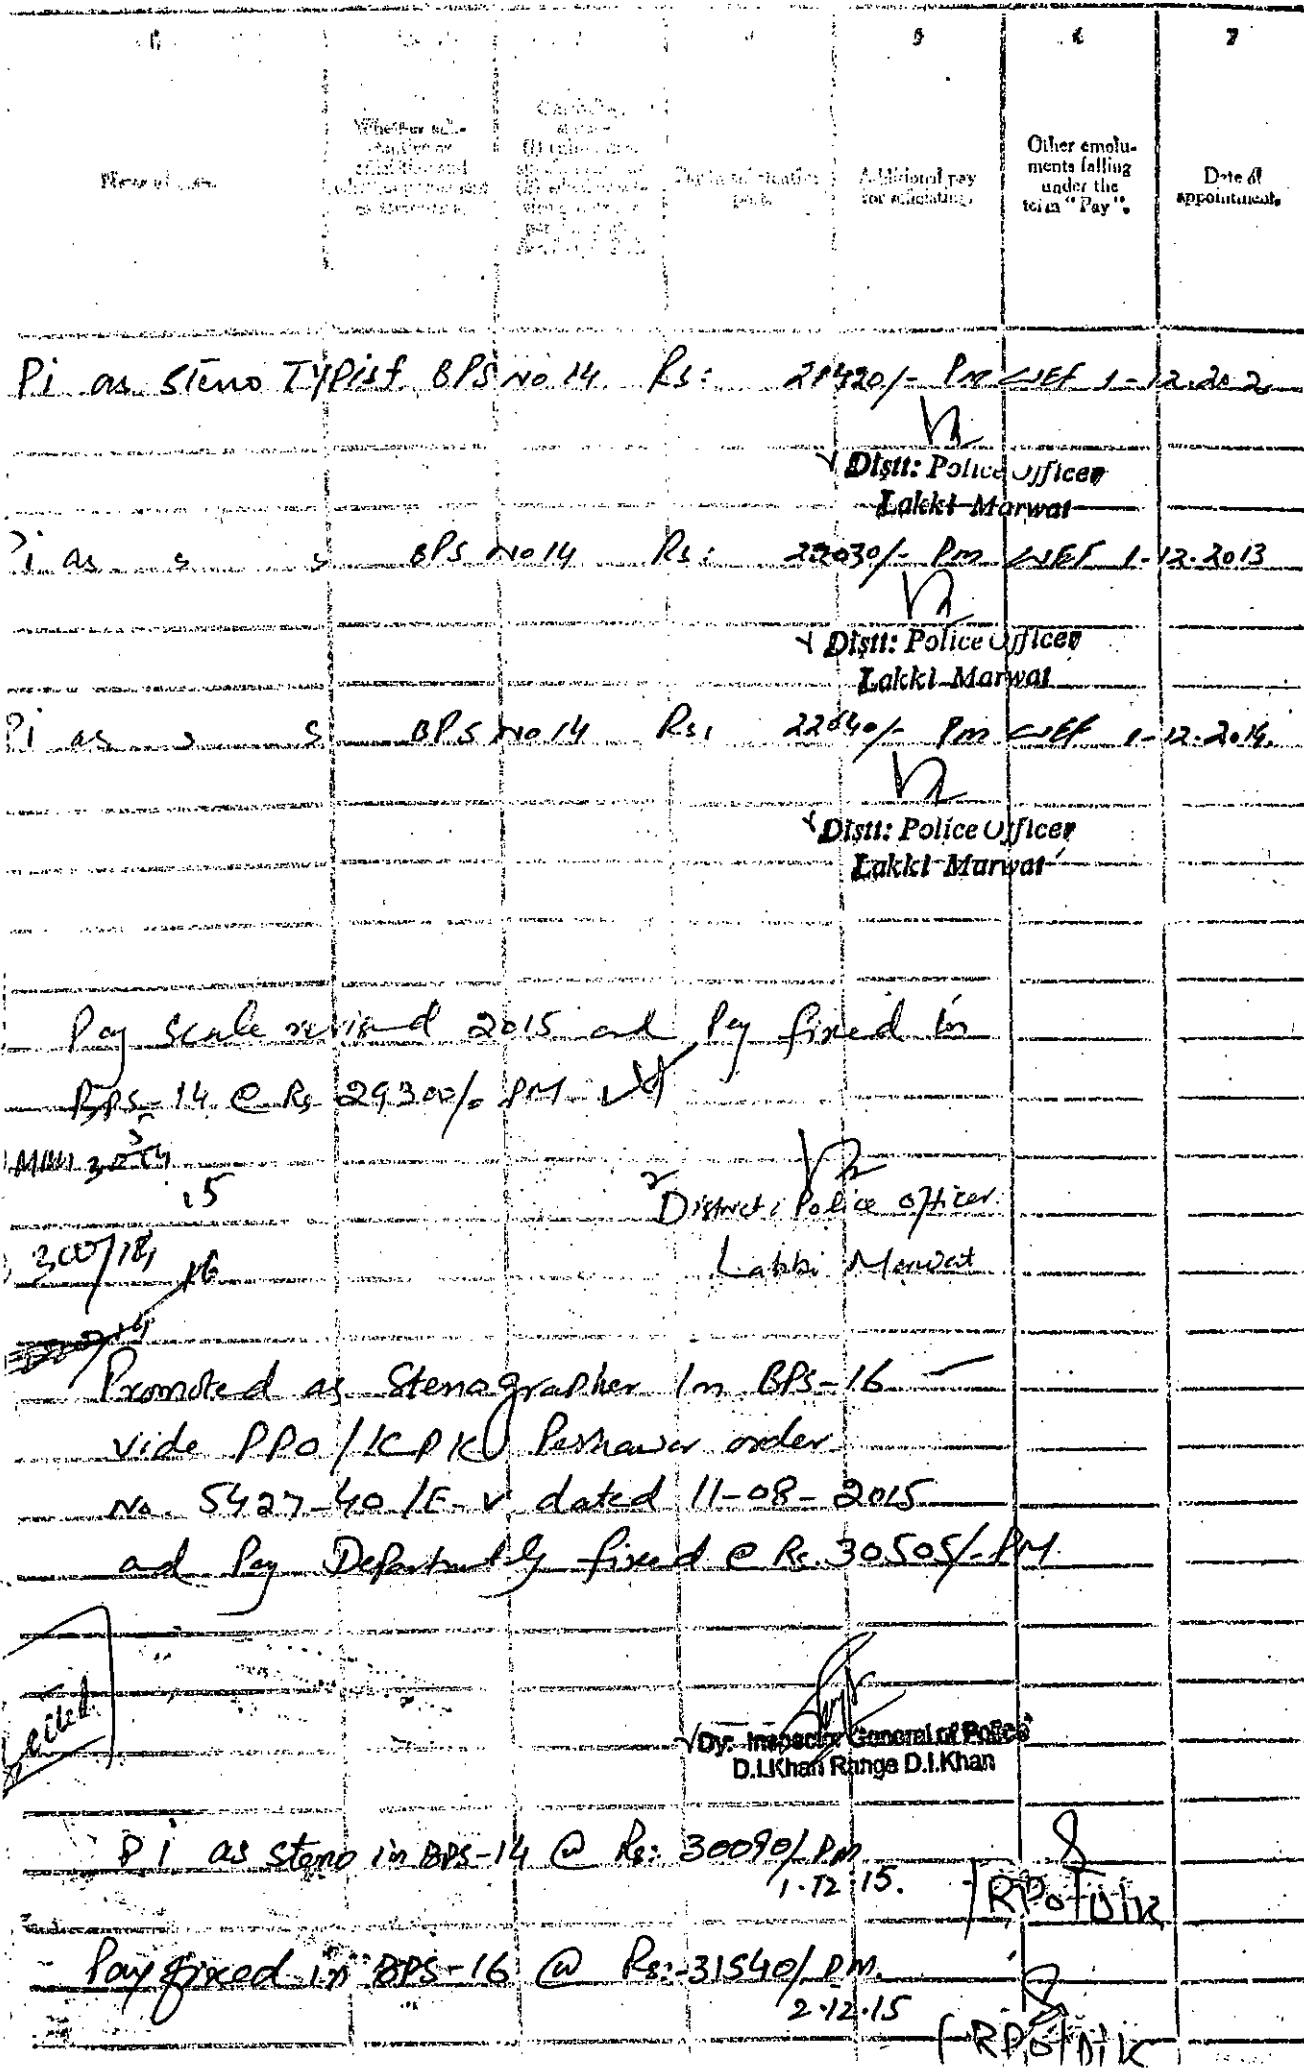 5 6 7
Whether sub-
Other emolu-
ments falling
under the
term "Pay".
Additional pay
for officiating
Date of
appointment.
Pi as Steno Typist BPS No 14 Rs: 21420/- Pm WEF 1-12.202
Distt: Police Officer
Lakki Marwat
Pi as s s BPS No 14 Rs: 22030/- Pm WEF 1-12.2013
Distt: Police Officer
Lakki Marwat
Pi as s s BPS No 14 Rs: 22640/- Pm WEF 1-12.2014.
Distt: Police Officer
Lakki Marwat
Pay Scale revised 2015 and Pay fixed in
BPS-14 @ Rs 29300/- PM
15
300/14
16
District Police officer
Lakki Marwat
Promoted as Stenographer in BPS-16
vide PPO/KPK Peshawar order
No. 5427-40/E-V dated 11-08-2015
and Pay Departmently fixed @ Rs. 30505/-PM.
Dy: Inspector General of Police
D.I.Khan Range D.I.Khan
P i as steno in BPS-14 @ Rs: 30090/ PM
1.12.15.
RPO/DIK
Pay fixed in BPS-16 @ Rs: 31540/ PM.
2.12.15
RPO/DIK